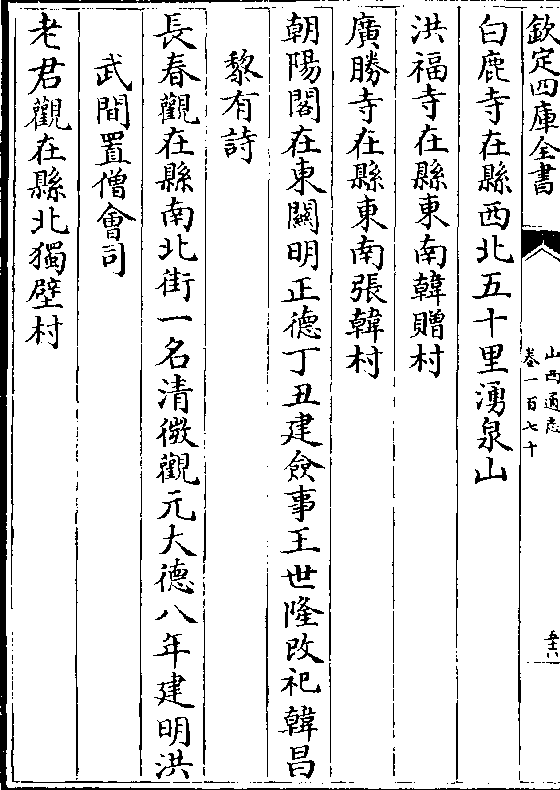 欽定四庫全書
山西通志
卷一百七十
白鹿寺在縣西北五十里湧泉山
洪福寺在縣東南韓贈村
廣勝寺在縣東南張韓村
朝陽閣在東關明正德丁丑建僉事王世隆改祀韓昌
黎有詩
長春觀在縣南北街一名清微觀元大德八年建明洪
武間置僧會司
老君觀在縣北獨壁村